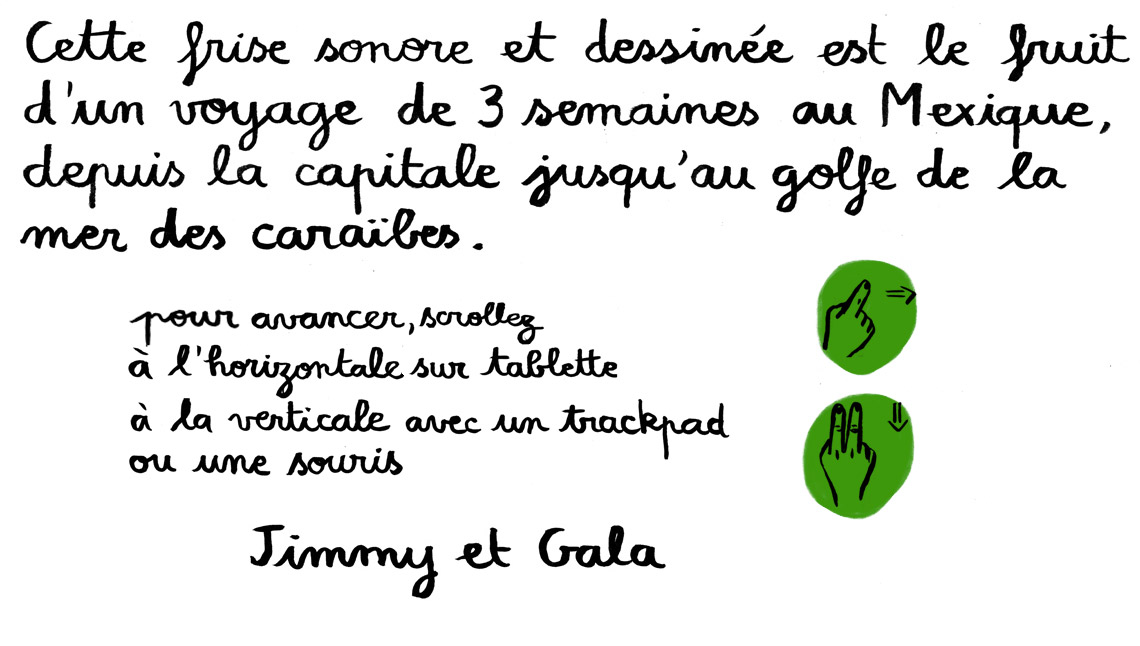 Cette frise sonore et dessinée est le fruit
d'un voyage de 3 semaines au Mexique,
depuis la capitale jusqu'au golfe de la
mer des caraïbes.
pour avancer, scrollez
à l'horizontale sur tablette
à la verticale avec un trackpad
ou une souris
Jimmy et Gala